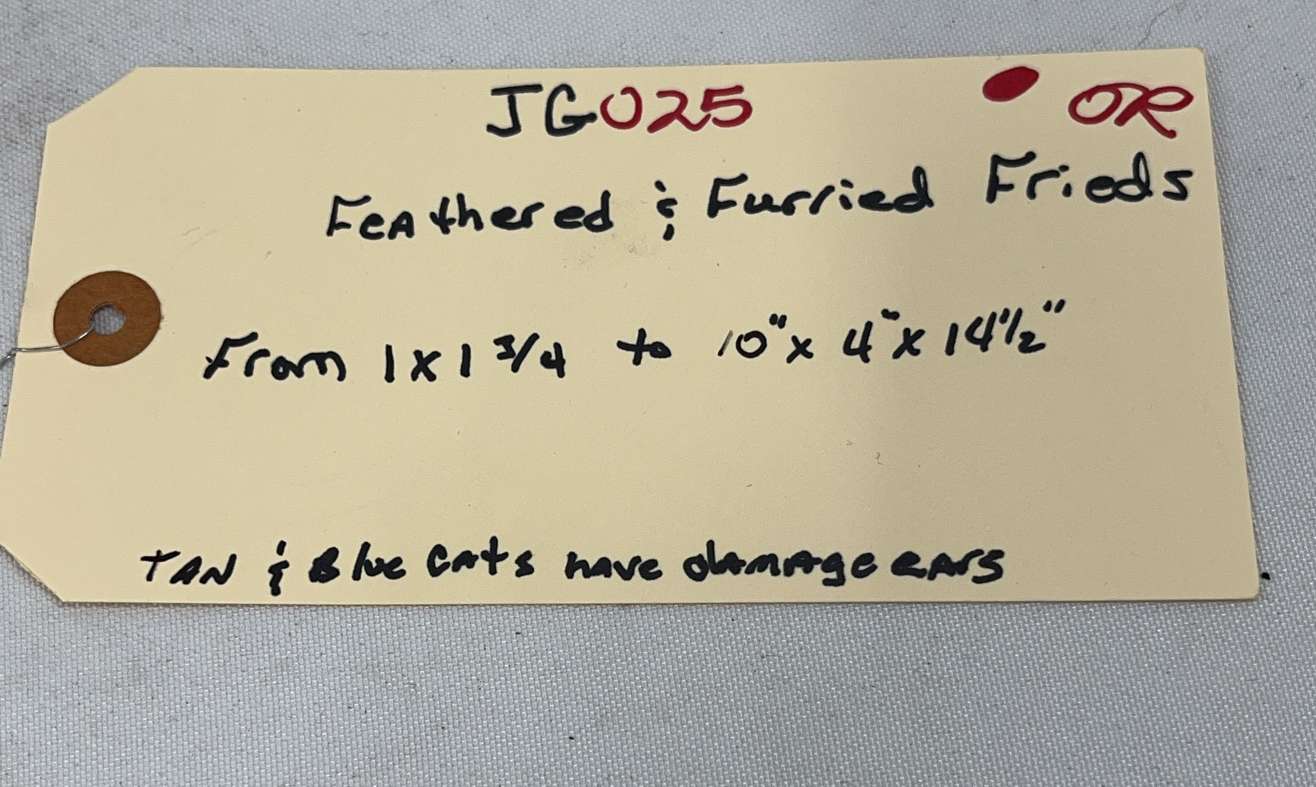 JG025 OR
Feathered & Furried Frieds
From 1 x 1 3/4 to 10" x 4" x 14 1/2"
TAN & Blue Cats have damage ears